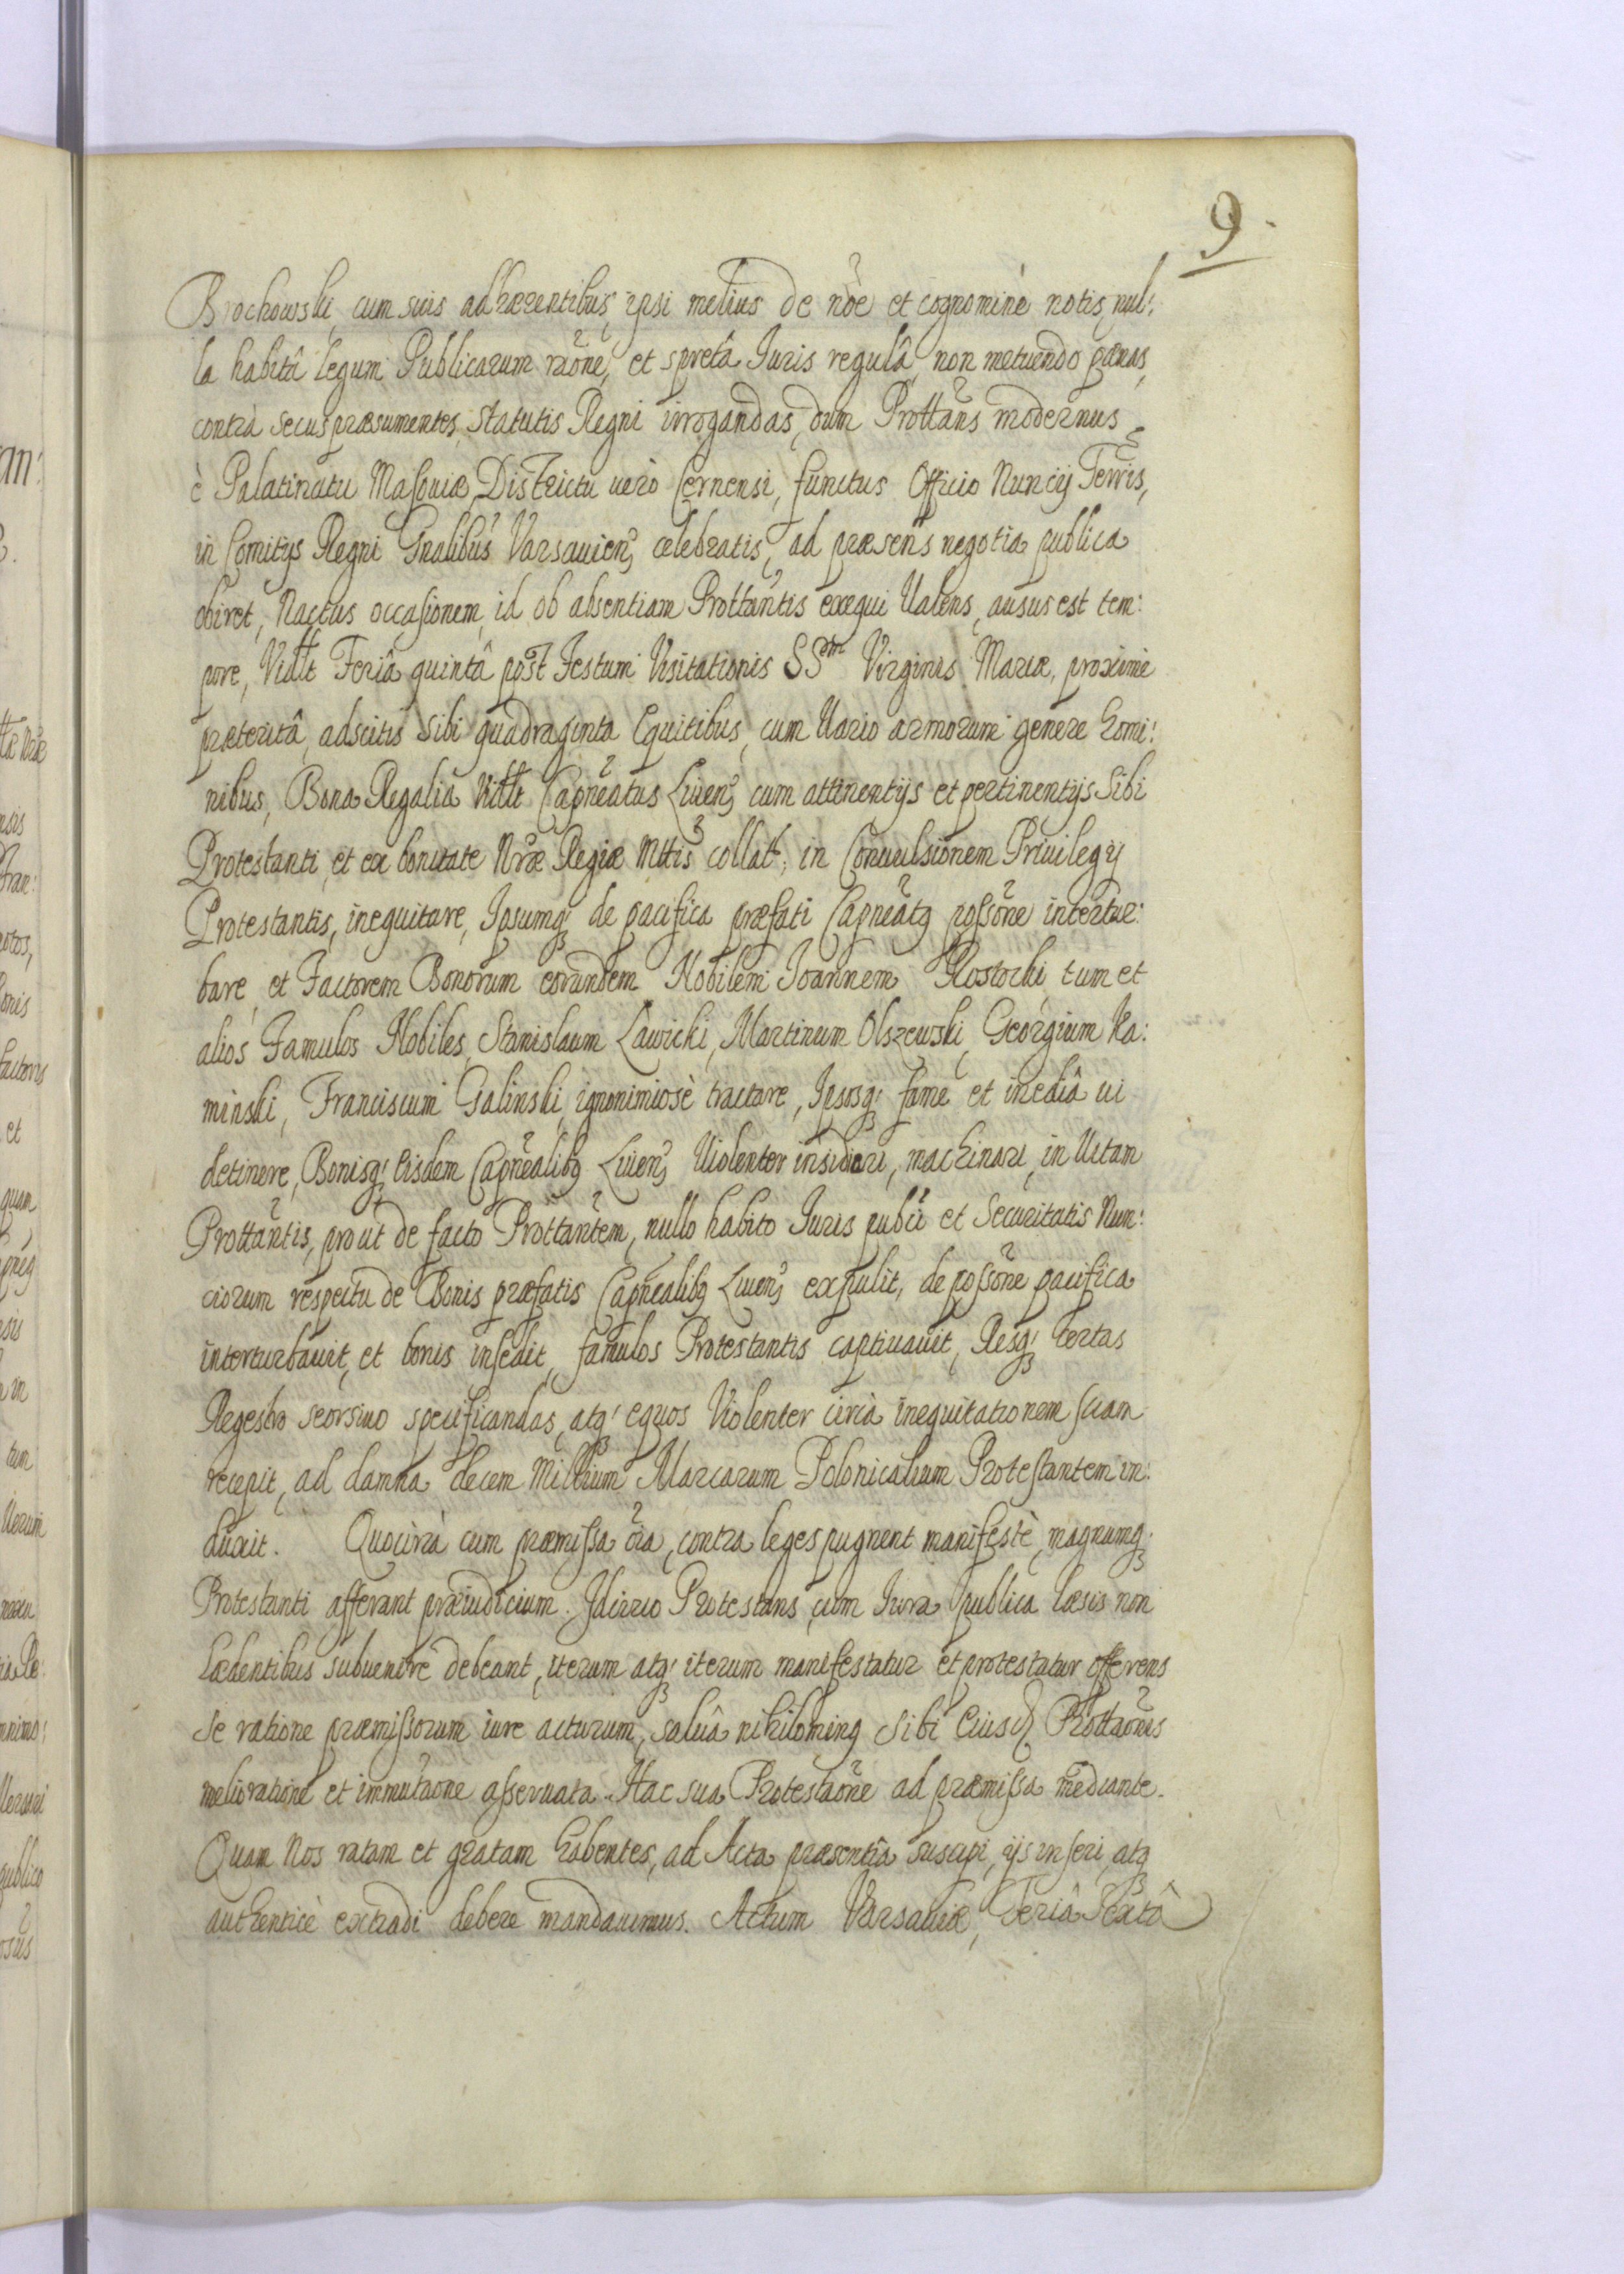 9
Brochowski, cum suis adhærentibus, ipsi melius de nõe et cognominè notis, nul:
la habitâ legum Publicarum raõne, et spretâ Juris regulâ, non metuendo pœnas,
contrà secus præsumentes, statutis Regni irrogandas, dum Prottãns modernus
è Palatinatu Masouiæ, Districtu uerò Cernensi, functus Officio Nuncij Terris,
in Comitijs Regni Gnalibus Varsauien, celebratis, ad præsens negotia publica
obiret, Nactus occasionem, id ob absentiam Prottãntis exequi Valens, ausus est tem:
pore, Vidtt Feriâ quintâ post Festum Visitationis SSmæ Virginis Mariæ, proximè
præteritâ, adscitis sibi quadraginta Equitibus, cum Uario armorum genere homi:
nibus, Bona Regalia Vidtt Capñeatus Liuen, cum attinentijs et pertinentijs Sibi
Protestanti, et ex bonitate Nræ Regiæ Mttis collat, in Conuulsionem Priuilegij
Protestantis, inequitare, Ipsumq; de pacifica præfati Capñeatq possõne intertur:
bare, et Factorem Bonorum eorundem Nobilem Joannem Rostocki, tum et
alios Famulos Nobiles, Stanislaum Lawicki, Martinum Olszewski, Georgium Ka:
minski, Franciscum Galinski, ignonimiosè tractare, Ipsosq; fame et inediâ ui
detinere, Bonisq; Eisdem Capñealibq Liuen, Uiolenter insidiari, machinari, in Uitam
Prottãntis, prout de facto Prottãntem, nullo habito Juris publi et Securitatis Nun:
ciorum respectu de Bonis præfatis Capñealibq Liuen, expulit, de possõne pacifica
interturbauit, et bonis insedit, famulos Protestantis captiuauit, Resq; certas
Regestro seorsiuo specificandas, atq; equos Violenter circà inequitationem suam
recepit, ad damna decem Millium Marcarum Polonicalium Protestantem in:
duxit. Quocircà cum præmissa õia, contra leges pugnent manifestè, magnamq;
Protestanti afferant præiudicium. Idcirco Protestans, cum Jura publica læsis non
lædentibus subuenire debeant, iterum atq; iterum manifestatur et protestatur offerens
se ratione præmissorum iure acturum, saluâ nihilominq Sibi Eiusd Prottaõnis
melioratione et immutaõne asseruata. Hac sua Protestaõne ad præmissa mediante.
Quam Nos ratam et gratam habentes, ad Acta præsentia suscipi, ijs inseri, atq
authenticè extradi debere mandauimus. Actum Varsauiæ, Feriâ Sextâ